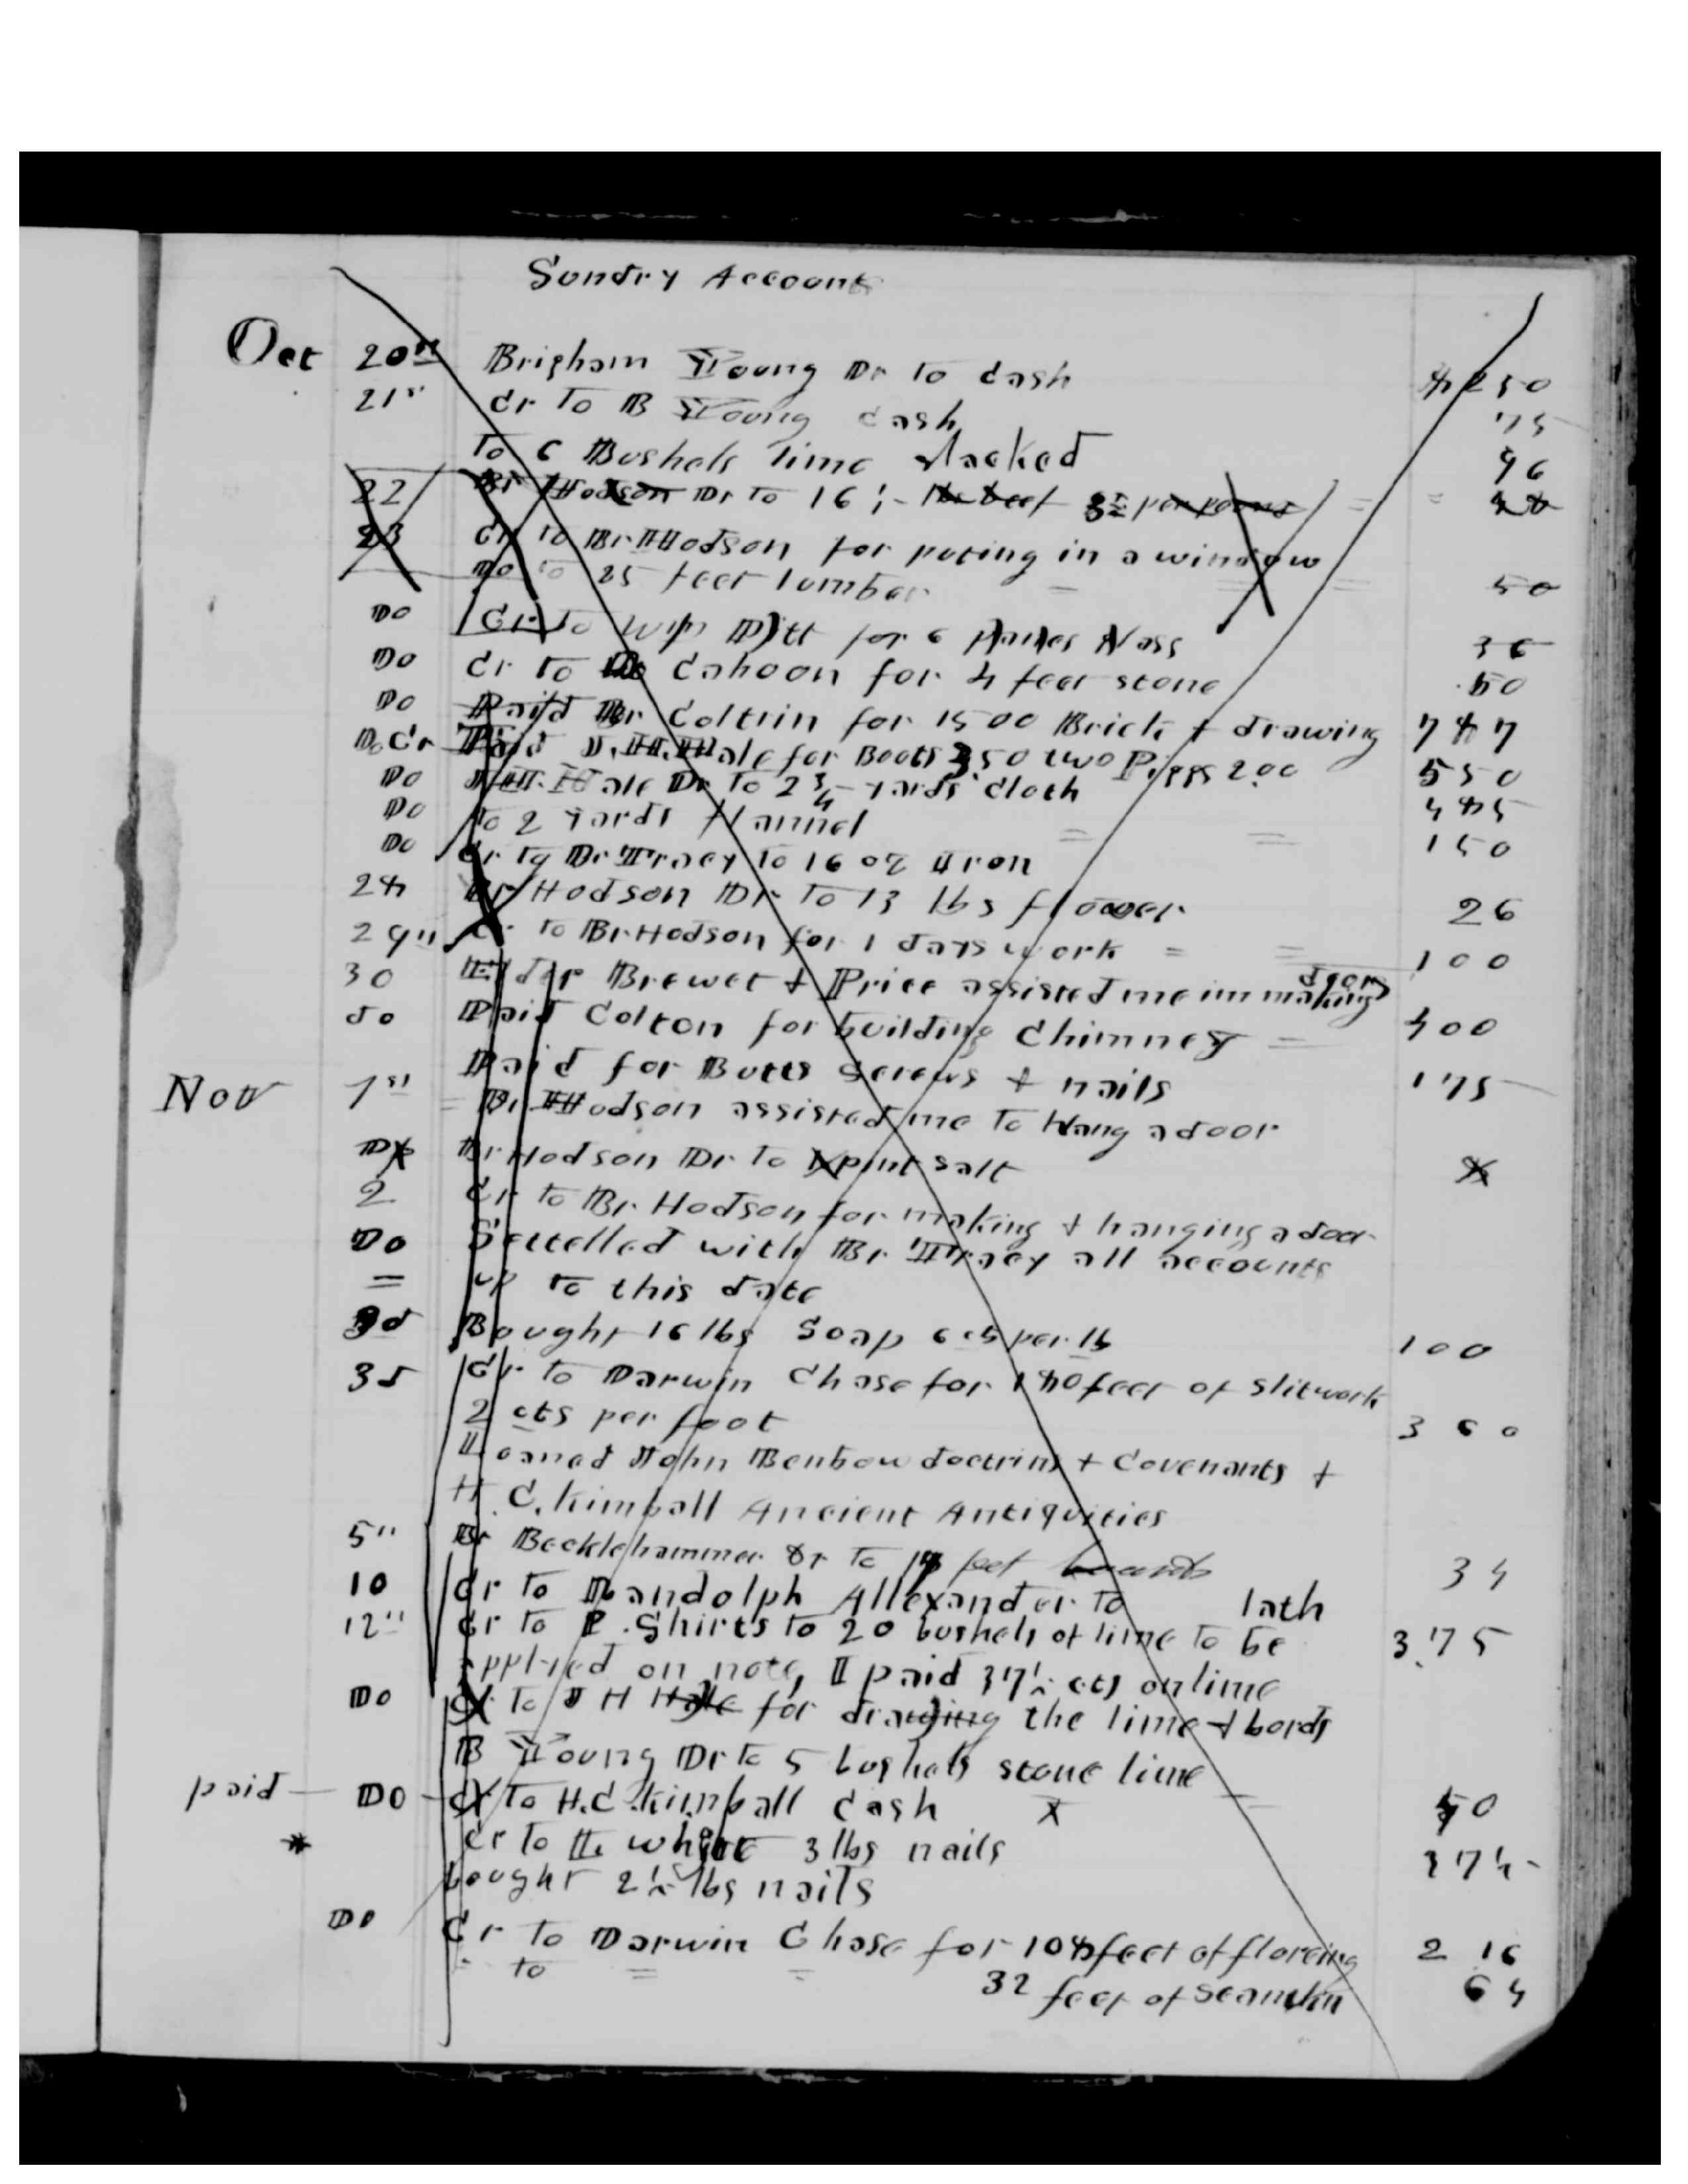 Sundry Accounts
Oct 20th Brigham Young Dr to Cash $4 250
21st Cr to B Young Cash 75
To 6 Bushels lime slacked 96
22 Br Hodson Dr to 16 1/2 lbs beef 3 cts per pound = = 48
23 Cr to Br Hodson for puting in a window
Do to 25 feet lumber = = = 50
Do Cr to Wm Pitt for 6 Panes Glass 36
Do Cr to Cahoon for 4 feet stone 50
Do Paid Br Coltrin for 1500 Brick + drawing 7 47
Do Cr Paid J. H. Hale for Boots 350 two Piggs 2.00 550
Do J. H. Hale Dr to 2 3/4 yards cloth 445
Do to 2 yards flannel = = 150
Do Cr to Dr Tracy to 16 oz Iron
24 Br Hodson Dr to 13 lbs flower 26
29" Cr to Br Hodson for 1 days work = = 100
30 Elder Brewer + Price assisted me imm making doors
do Paid Colton for building Chimney = 400
Paid for Butts Screws + nails 175
Nov 1st = Br Hodson assisted me to Hang a door
Do Br Hodson Dr to 1 pint salt 4
2 Cr to Br Hodson for making + hanging a door
Do Settelled with Br Tracy all accounts
= up to this date
3d Bought 16 lbs Soap 6 cts per lb 100
3d Cr to Darwin Chase for 180 feet of slitwork
2 cts per foot 3 60
Loaned John Benbow doctrins + Covenants +
H C. Kimball Ancient Antiquities
5" Br Becklehammer Dr to 17 feet boards 34
10 Cr to Randolph Allexander to lath
12" Cr to P. Shirts to 20 bushels of lime to be 3.75
applyed on note, I paid 37 1/2 cts on lime
Do Cr to J H Hale for drawing the lime + bords
B Young Dr to 5 bushels stone lime
paid — Do - Cr to H.C. Kimball Cash X = 50
* Cr to White 3 lbs nails 37 1/2
bought 2 1/2 lbs nails
Do Cr to Darwin Chase for 108 feet of floreing 2 16
" to = = 32 feet of scantlin 64